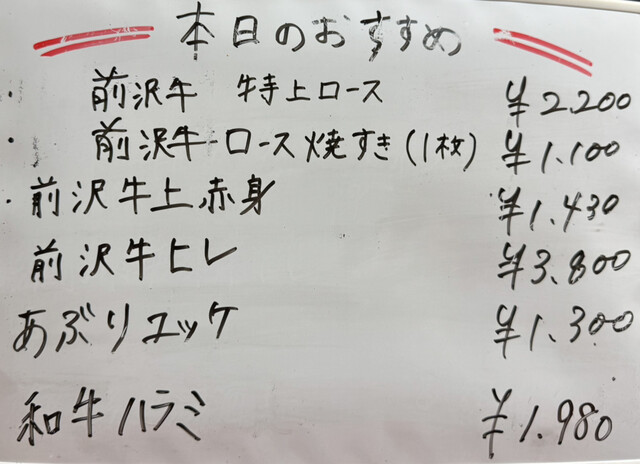 本日のおすすめ
前沢牛 特上ロース ¥2.200
前沢牛ロース焼すき(1枚) ¥1.100
前沢牛上赤身 ¥1.430
前沢牛ヒレ ¥3.800
あぶりユッケ ¥1.300
和牛ハラミ ¥1.980